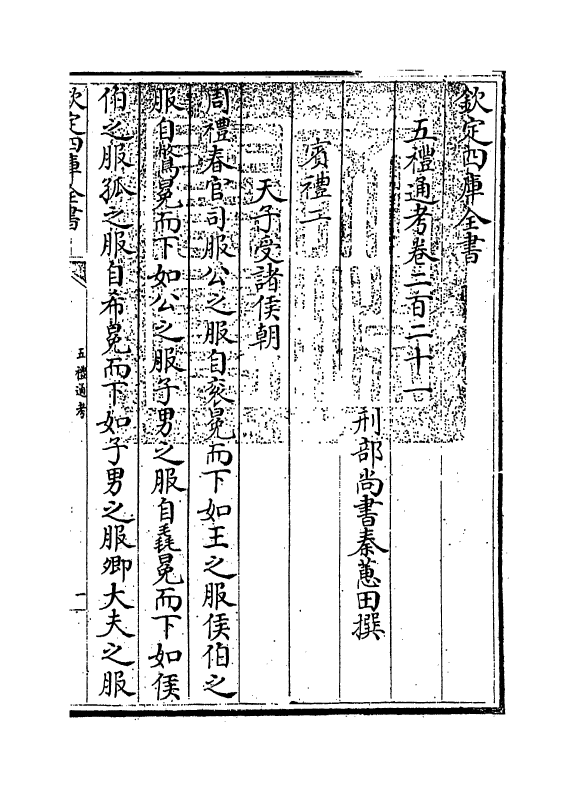 欽定四庫全書
五禮通考卷二百二十一
刑部尚書秦蕙田撰
賓禮二
天子受諸侯朝
周禮春官司服公之服自袞冕而下如王之服侯伯之
服自鷩冕而下如公之服子男之服自毳冕而下如侯
伯之服孤之服自希冕而下如子男之服卿大夫之服
欽定四庫全書
五禮通考
一